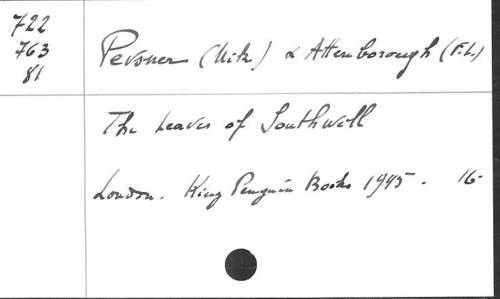 722
763
81
Pevsner (Nik.) & Attenborough (F.L.)
The Leaves of Southwell
London. King Penguin Books 1945. 16-